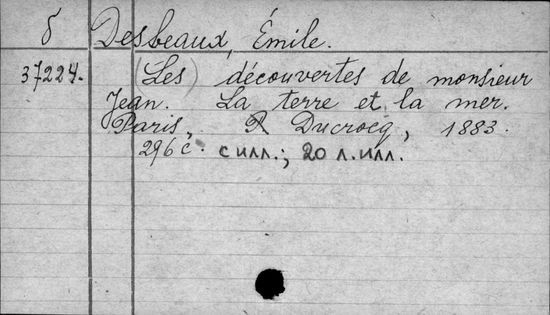 б Desbeaux, Émile.
37224. (Les) découvertes de monsieur
Jean. La terre et la mer.
Paris, P. Ducrocq, 1883.
296 с. с илл.; 20 л. илл.